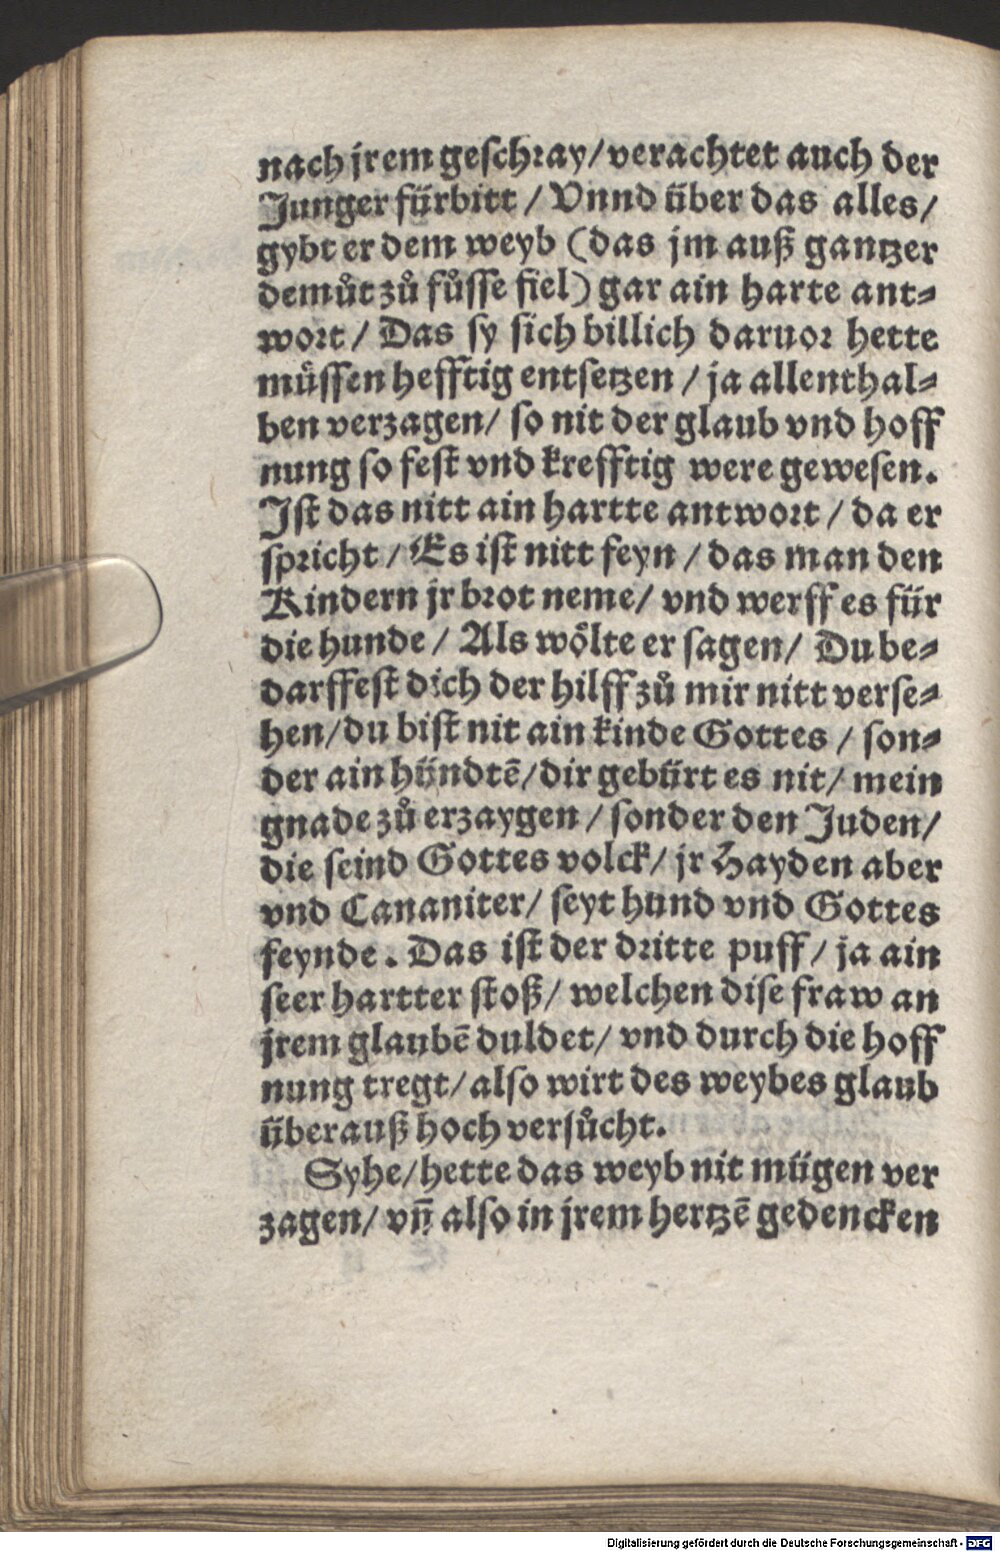 nach jrem geschray/verachtet auch der
Junger fürbitt / Vnnd über das alles/
gybt er dem weyb (das jm auß gantzer
demůt zů fůsse fiel) gar ain harte ant⸗
wort / Das sy sich billich daruor hette
můssen hefftig entsetzen / ja allenthal⸗
ben verzagen/ so nit der glaub vnd hoff
nung so fest vnd krefftig were gewesen.
Ist das nitt ain hartte antwort / da er
spricht / Es ist nitt feyn / das man den
Kindern jr brot neme/ vnd werff es für
die hunde / Als wölte er sagen/ Du be⸗
darffest dich der hilff zů mir nitt verse⸗
hen/du bist nit ain kinde Gottes / son⸗
der ain hündtẽ/dir gebürt es nit/ mein
gnade zů erzaygen / sonder den Juden/
die seind Gottes volck/ jr Hayden aber
vnd Cananiter/ seyt hund vnd Gottes
feynde. Das ist der dritte puff / ja ain
seer hartter stoß/ welchen dise fraw an
jrem glaubẽ duldet/ vnd durch die hoff
nung tregt/ also wirt des weybes glaub
überauß hoch versůcht.
Syhe/hette das weyb nit mügen ver
zagen/ vñ also in jrem hertzẽ gedencken
Digitalisierung gefördert durch die Deutsche Forschungsgemeinschaft - DFG